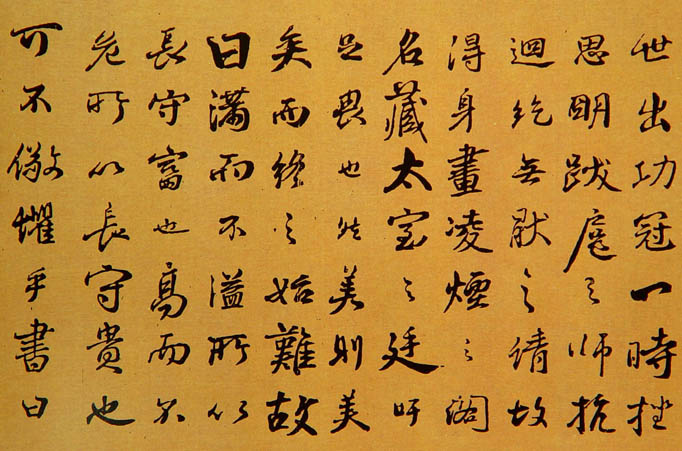 世出功冠一時挫
思明跋扈之師抗
迴紇無厭之請故
得身畫凌煙之閣
名藏太室之廷吁
足畏也然美則美
矣而終之始難故
曰滿而不溢所以
長守富也高而不
危所以長守貴也
可不儆懼乎書曰